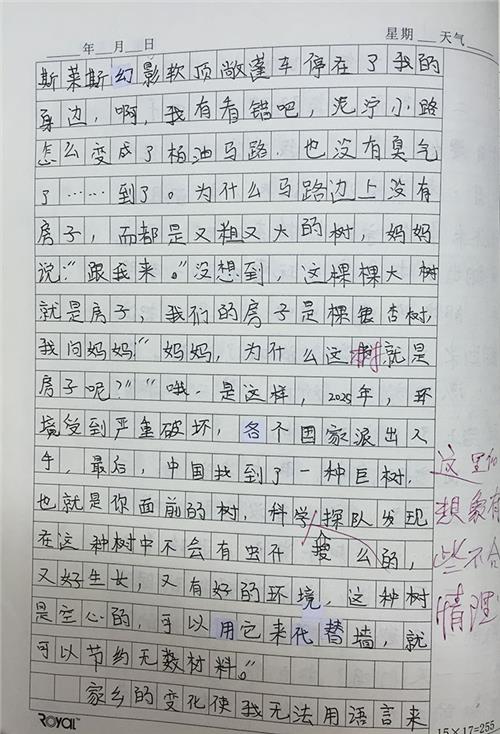 年 月 日 星期 天气
斯莱斯幻影软顶敞蓬车停在了我的
身边，啊，我有看错吧，泥泞小路
怎么变成了柏油马路．也没有臭气
了……到了。为什么马路边上没有
房子，而都是又粗又大的树，妈妈
说：“跟我来。”没想到，这棵棵大树
就是房子，我们的房子是棵银杏树，
我问妈妈：“妈妈，为什么这树就是
房子呢？”“哦，是这样，2025年，环
境受到严重破坏，各个国家派出人
手，最后，中国找到了一种巨树，
也就是你面前的树，科学探队发现
在这种树中不会有虫什么的，
又好生长，又有好的环境，这种树
是空心的，可以用它来代替墙，就
可以节约无数材料。”
家乡的变化使我无法用语言来
这里
想象有
些不合
情理
ROYAL
15×17=255